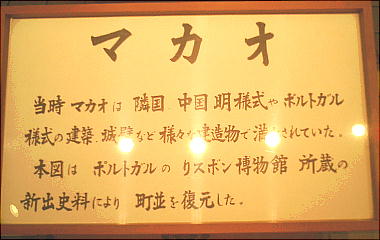 マカオ
当時 マカオは 隣国 中国 明様式や ポルトガル
様式の建築、城壁など様々な建造物で満たされていた。
本図は ポルトガルの リスボン博物館 所蔵の
新出史料により 町並を復元した。